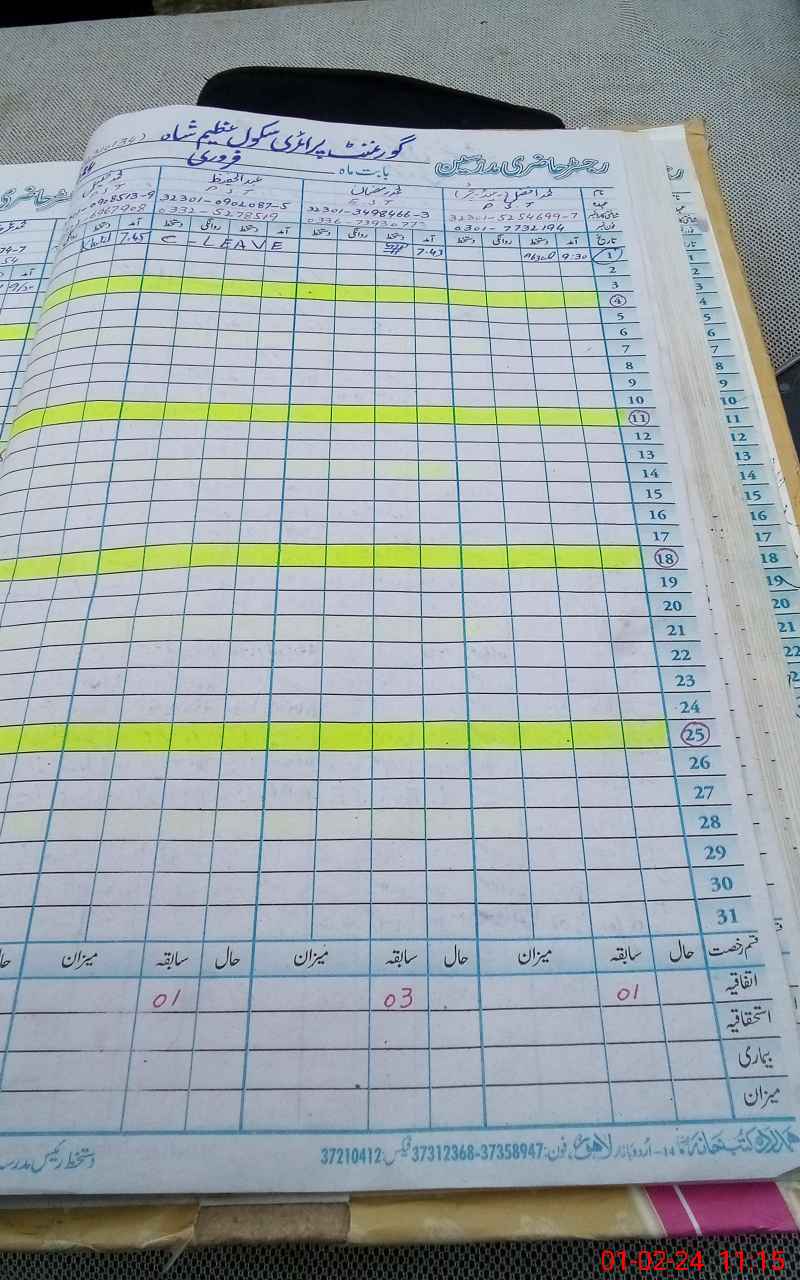 رجسٹر حاضری مدرسین
گورنمنٹ پرائمری سکول عظیم شاہ
بابت ماہ فروری
نام محمد افضل محمد رمضان عبدالحفیظ
عہدہ P S T E S T P S T P S T
32301-5254699-7 32301-3498466-3 32301-0902087-5
0301-7732194 0332-5278519
تاریخ آمد دستخط روانگی دستخط آمد دستخط روانگی دستخط آمد دستخط روانگی دستخط آمد دستخط
1 9:30 7.43 C-LEAVE 7.45
2
3
4
5
6
7
8
9
10
11
12
13
14
15
16
17
18
19
20
21
22
23
24
25
26
27
28
29
30
31
قسم رخصت حال سابقہ میزان حال سابقہ میزان حال سابقہ میزان
اتفاقیہ 01 03 01
استحقاقیہ
بیماری
میزان
14-اردو بازار لاہور، فون: 37358947-37312368 فیکس: 37210412
دستخط رئیس مدرسہ
01-02-24 11:15